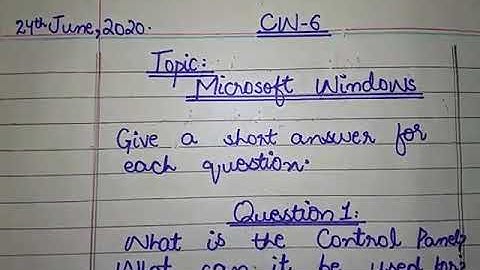 24th June, 2020.
CW-6
Topic:
Microsoft Windows
Give a short answer for
each question.
Question 1:
What is the Control Panel?
What can it be used for?